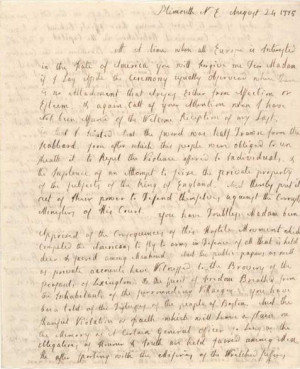 Plimouth N E August 24 1775
At a time when all Europe is Interested
in the Fate of America you will forgive me Dear Madam
if I lay Aside the Ceremony usually observed when there
is no Attachment that Arises either from Affection or
Esteem, & again call of your Attention when I have
Not been Assured of the Welcome Reception of my Last.
In that I hinted that the sword was half Drawn from the
Scabbard. Soon after which this people were obliged to un
sheath it to Repel the Violence offered to Individuals, &
the Insolence of an Attempt to seize the private property
of the subjects of the King of England. And thereby put it
out of their power to Defend themselves against the Corrupt
Ministers of His Court.
you have Doubtless Madam been
Apprized of the Consequences of this Hostile Movement which
compelled the Americans to fly to arms in Defence of all that is held
dear & sacred among Mankind. And the public papers as well
as private accounts have Witnessed to the Bravery of the
Peasants of Lexington, & the spirit of freedom Breathed from
the Inhabitants of the surrounding Villages. you have
been told of the Distresses of the people of Boston. And the
shameful Violation of faith which will Leave a stain on
the Memory of a Certain General officer so long as the
obligations of Honour & Truth are held sacred among Men
the after sporting with the Miseries of the Wretched